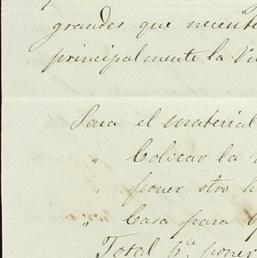 grandes que necesite
principalmente la Vi
Para el material
" Colocar la
" poner otro h
" Casa para
Total pª poner